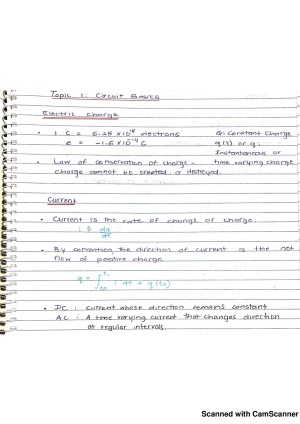 Topic 1: Circuit Basics
Electric Charge
• 1 C = 6.25 X10¹⁸ electrons
Q: Constant Charge
e = -1.6 X10⁻¹⁹ C
q(t) or q:
Instantaneous or
• Law of conservation of charge - time varying charge
charge cannot be created or destroyed.
Current
• Current is the rate of change of charge.
i ≜ dq/dt
• By convention the direction of current is the net
flow of positive charge
q = ∫ i dt + q(t₀)
• DC: current whose direction remains constant
AC: A time varying current that changes direction
at regular intervals.
Scanned with CamScanner